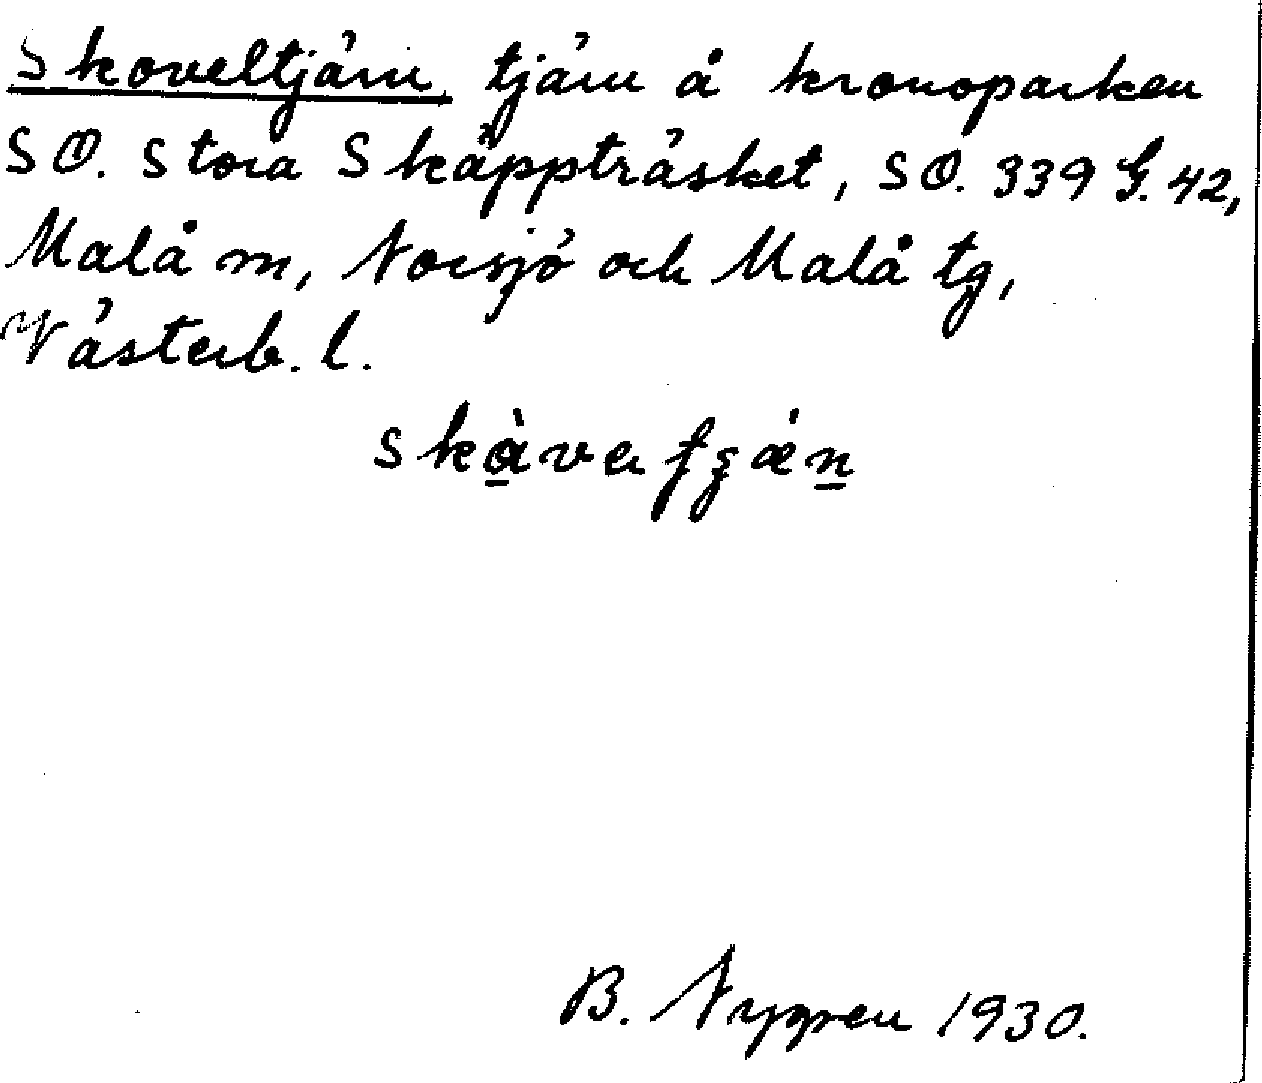 Skoveltjärn, tjärn å kronoparken
SO. Stora Skäppträsket, SO. 339 G. 42,
Malå sn, Norsjö och Malå tg,
Västerb. l.
B. Nygren 1930.